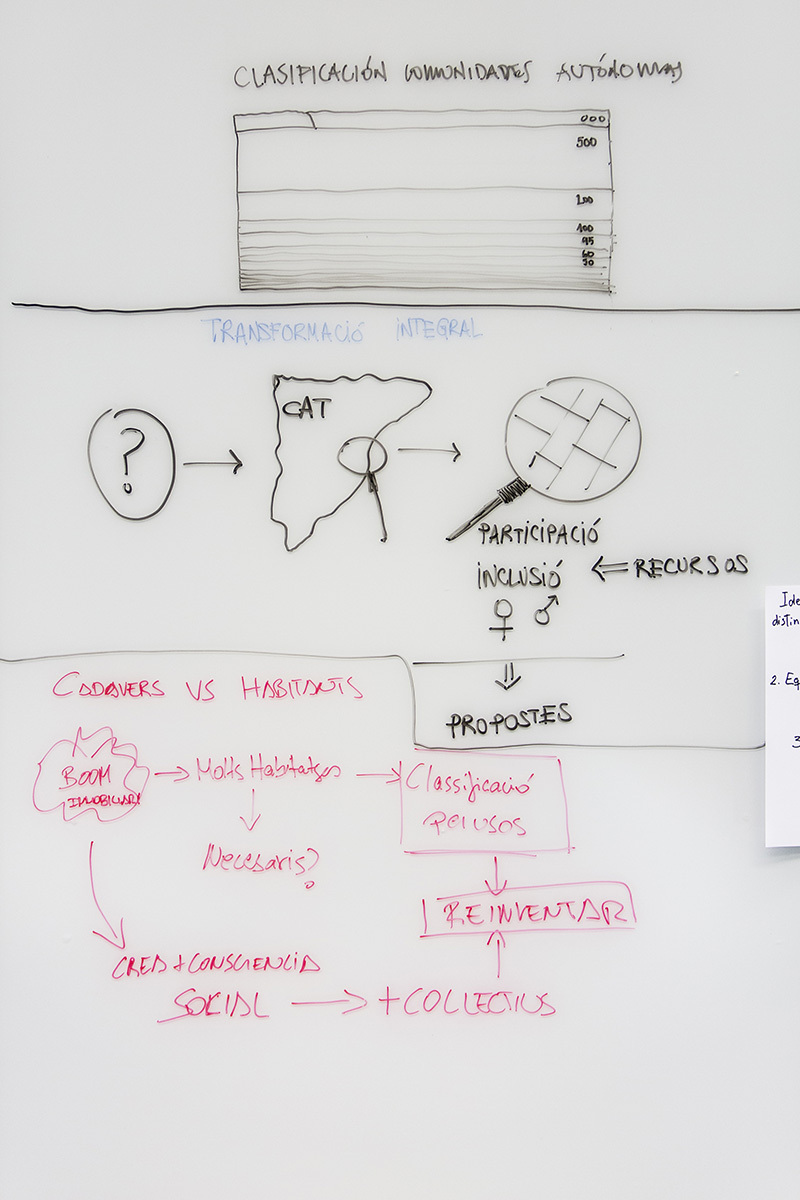 CLASIFICACIÓN COMUNIDADES AUTÓNOMAS
000
500
200
100
95
60
50
TRANSFORMACIÓ INTEGRAL
?
CAT
PARTICIPACIÓ
INCLUSIÓ
RECURSOS
♀ ♂
PROPOSTES
CADAVERS VS HABITANTS
BOOM
IMMOBILIARI
Molts Habitatges
Necesaris?
Classificació
PER USOS
REINVENTAR
CREA + CONSCIENCIA
SOCIAL
+ COLLECTIUS
Ide
distin
2. Eq
3